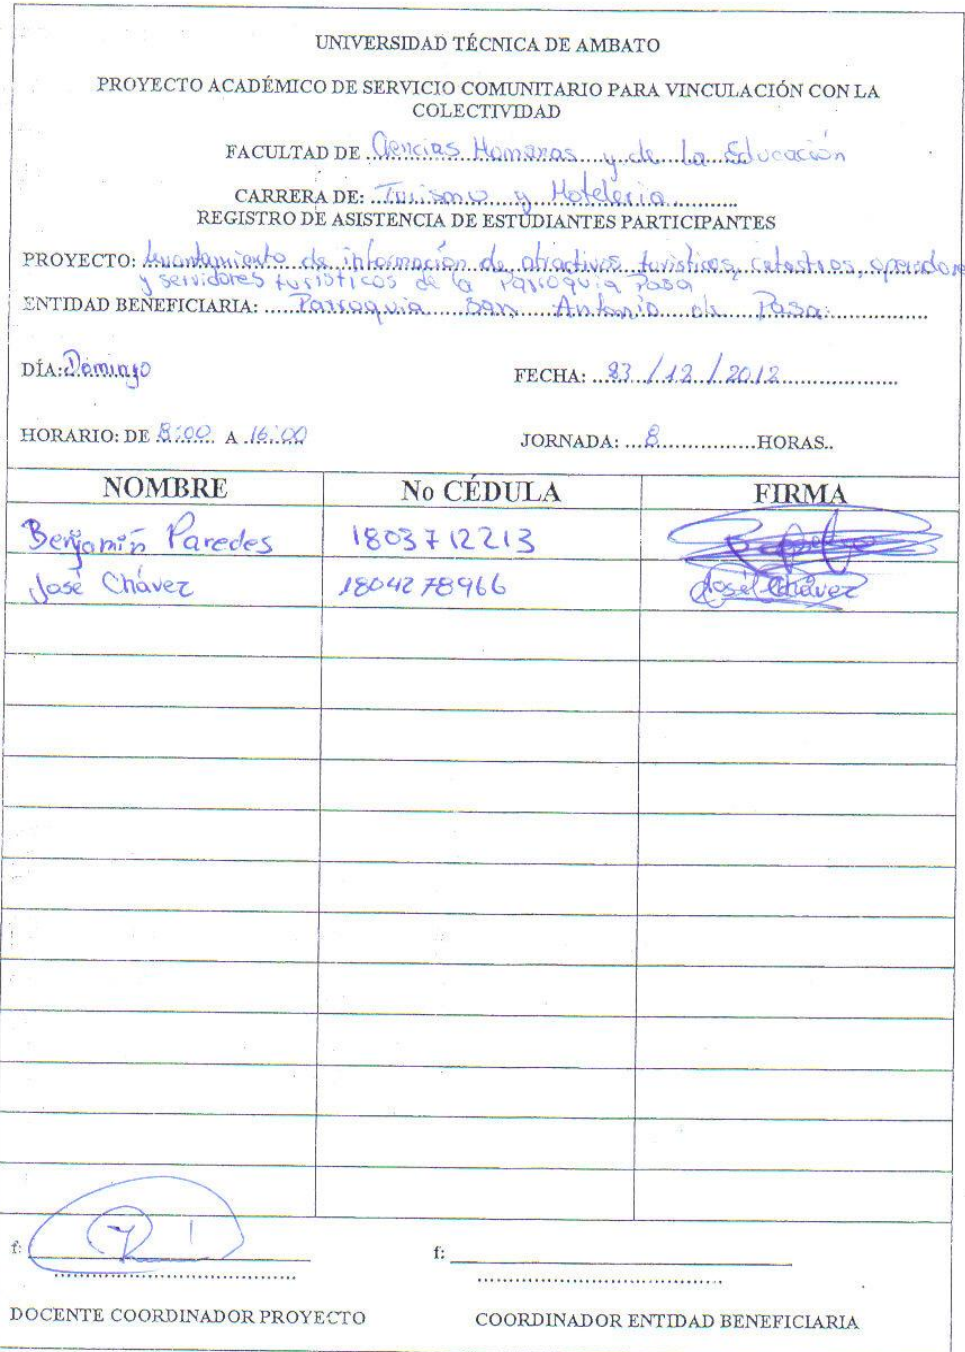 UNIVERSIDAD TÉCNICA DE AMBATO
PROYECTO ACADÉMICO DE SERVICIO COMUNITARIO PARA VINCULACIÓN CON LA
COLECTIVIDAD
FACULTAD DE Ciencias Humanas y de la Educación
CARRERA DE: Turismo y Hoteleria
REGISTRO DE ASISTENCIA DE ESTUDIANTES PARTICIPANTES
PROYECTO: levantamiento de información de atractivos turísticos, catastros, operadore
y servidores turísticos de la Parroquia Pasa
ENTIDAD BENEFICIARIA: Parroquia San Antonio de Pasa
DÍA: Domingo FECHA: 23/12/2012
HORARIO: DE 8:00 A 16:00 JORNADA: 8 HORAS..
NOMBRE No CÉDULA FIRMA
Benjamín Paredes 1803712213
José Chávez 1804278966 José Chávez
f: f:
DOCENTE COORDINADOR PROYECTO COORDINADOR ENTIDAD BENEFICIARIA